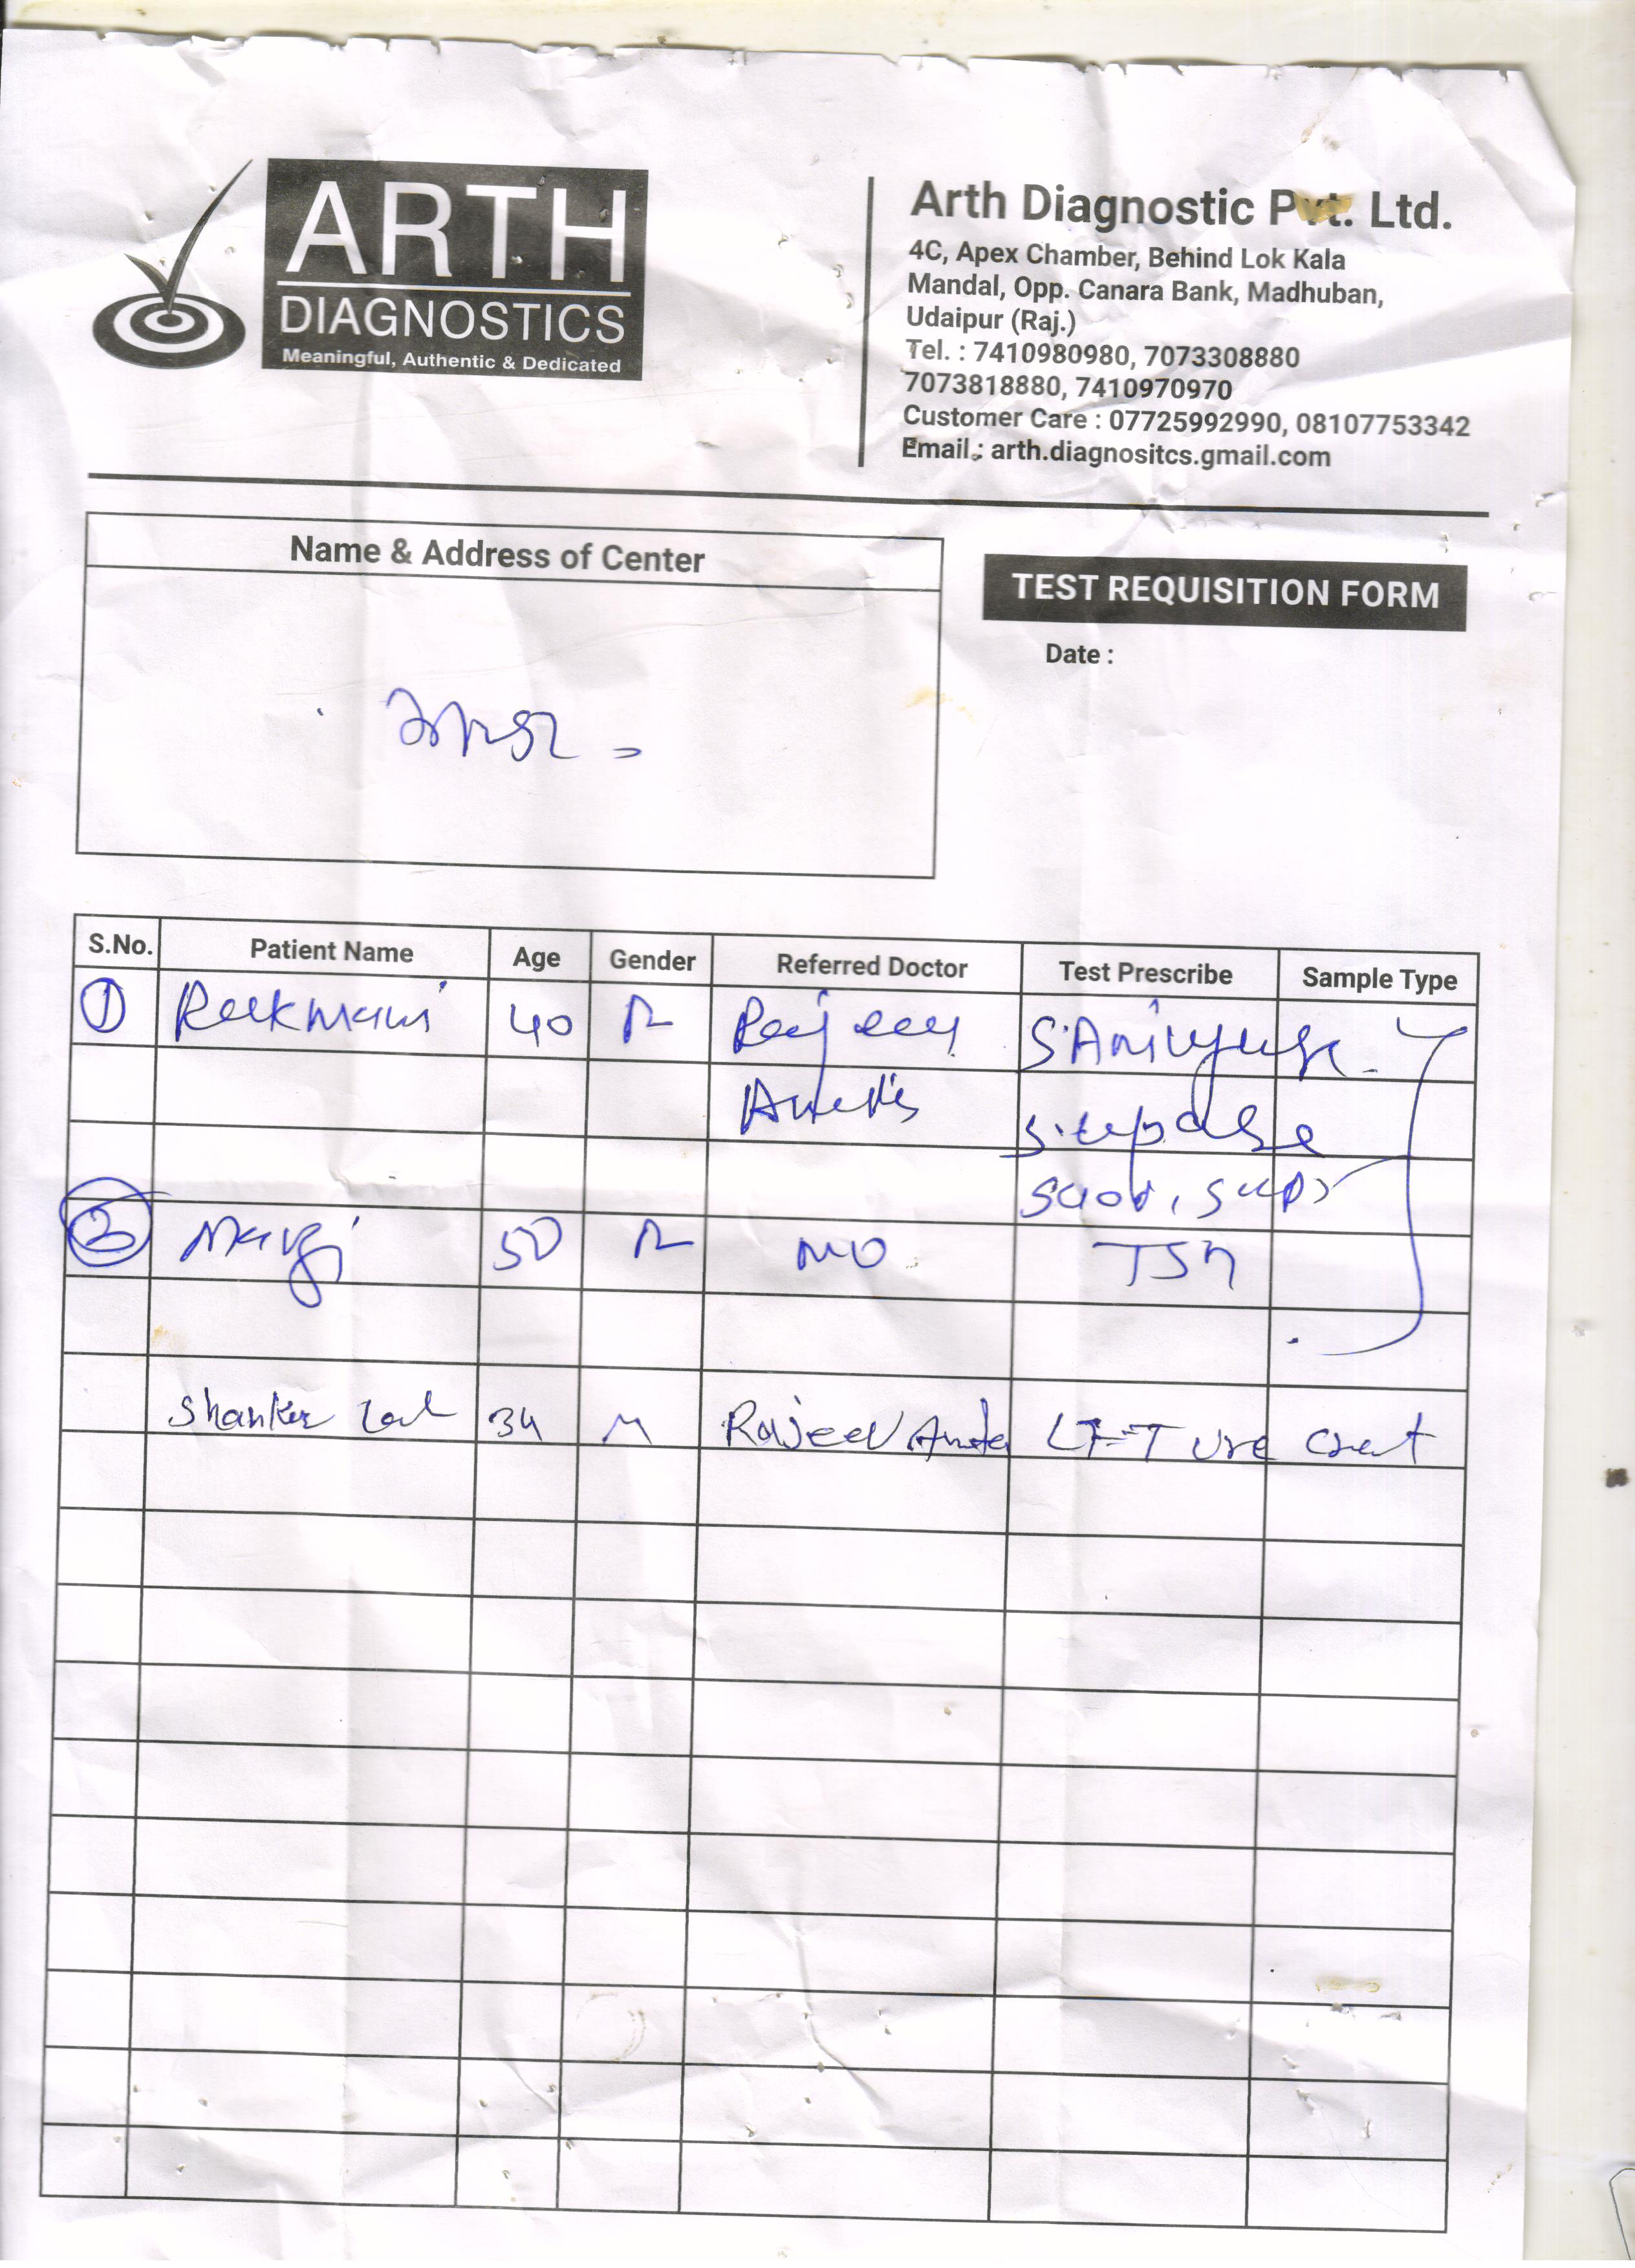 ARTH
DIAGNOSTICS
Meaningful, Authentic & Dedicated
Arth Diagnostic Pvt. Ltd.
4C, Apex Chamber, Behind Lok Kala
Mandal, Opp. Canara Bank, Madhuban,
Udaipur (Raj.)
Tel. : 7410980980, 7073308880
7073818880, 7410970970
Customer Care : 07725992990, 08107753342
Email : arth.diagnositcs.gmail.com
Name & Address of Center
TEST REQUISITION FORM
Date :
S.No. Patient Name Age Gender Referred Doctor Test Prescribe Sample Type
1 40
2 50 TSH
Shanker Lal 34 M Rajeev LFT Ure Creat